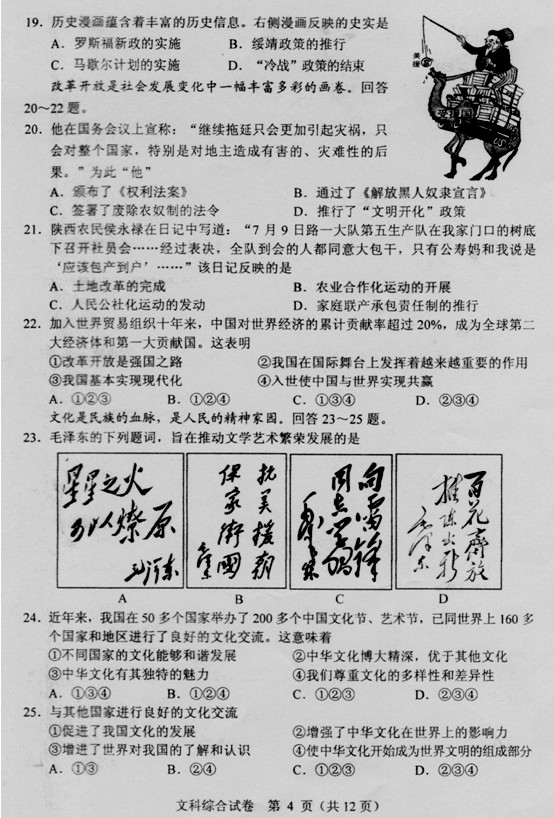 19．历史漫画蕴含着丰富的历史信息。右侧漫画反映的史实是
A．罗斯福新政的实施 B．绥靖政策的推行
C．马歇尔计划的实施 D．“冷战”政策的结束
美援
US
改革开放是社会发展变化中一幅丰富多彩的画卷。回答
20～22题。
20．他在国务会议上宣称：“继续拖延只会更加引起灾祸，只
会对整个国家，特别是对地主造成有害的、灾难性的后
果。”为此“他”
A．颁布了《权利法案》 B．通过了《解放黑人奴隶宣言》
C．签署了废除农奴制的法令 D．推行了“文明开化”政策
21．陕西农民侯永禄在日记中写道：“7月9日路一大队第五生产队在我家门口的树底
下召开社员会……经过表决，全队到会的人都同意大包干，只有公寿妈和我说是
‘应该包产到户’……”该日记反映的是
A．土地改革的完成 B．农业合作化运动的开展
C．人民公社化运动的发动 D．家庭联产承包责任制的推行
22．加入世界贸易组织十年来，中国对世界经济的累计贡献率超过20%，成为全球第二
大经济体和第一大贡献国。这表明
①改革开放是强国之路 ②我国在国际舞台上发挥着越来越重要的作用
③我国基本实现现代化 ④入世使中国与世界实现共赢
A．①②③ B．①②④ C．①③④ D．②③④
文化是民族的血脉，是人民的精神家园。回答23～25题。
23．毛泽东的下列题词，旨在推动文学艺术繁荣发展的是
星星之火
可以燎原
毛泽东
抗美援朝
保家卫国
向雷锋
同志学习
毛泽东
百花齐放
推陈出新
毛泽东
A B C D
24．近年来，我国在50多个国家举办了200多个中国文化节、艺术节，已同世界上160多
个国家和地区进行了良好的文化交流。这意味着
①不同国家的文化能够和谐发展 ②中华文化博大精深，优于其他文化
③中华文化有其独特的魅力 ④我们尊重文化的多样性和差异性
A．①③④ B．①②④ C．①②③ D．②③④
25．与其他国家进行良好的文化交流
①促进了我国文化的发展 ②增强了中华文化在世界上的影响力
③增进了世界对我国的了解和认识 ④使中华文化开始成为世界文明的组成部分
A．①③ B．②④ C．①②③ D．②③④
文科综合试卷 第4页（共12页）